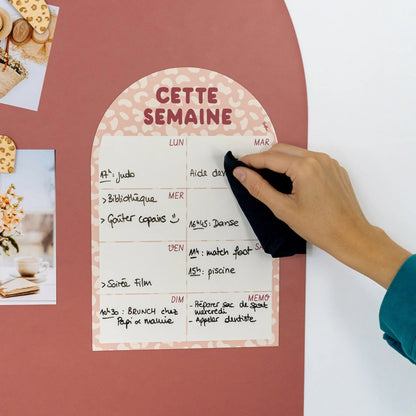 CETTE
SEMAINE
LUN
17h: Judo
MAR
Aide
MER
> Bibliothèque
> Goûter copains
16h45: Danse
VEN
> Soirée Film
SA
11h: match foot
15h: piscine
DIM
10h30: BRUNCH chez
Papi et mamie
MEMO
- Préparer sac de sport
mercredi
- Appeler dentiste